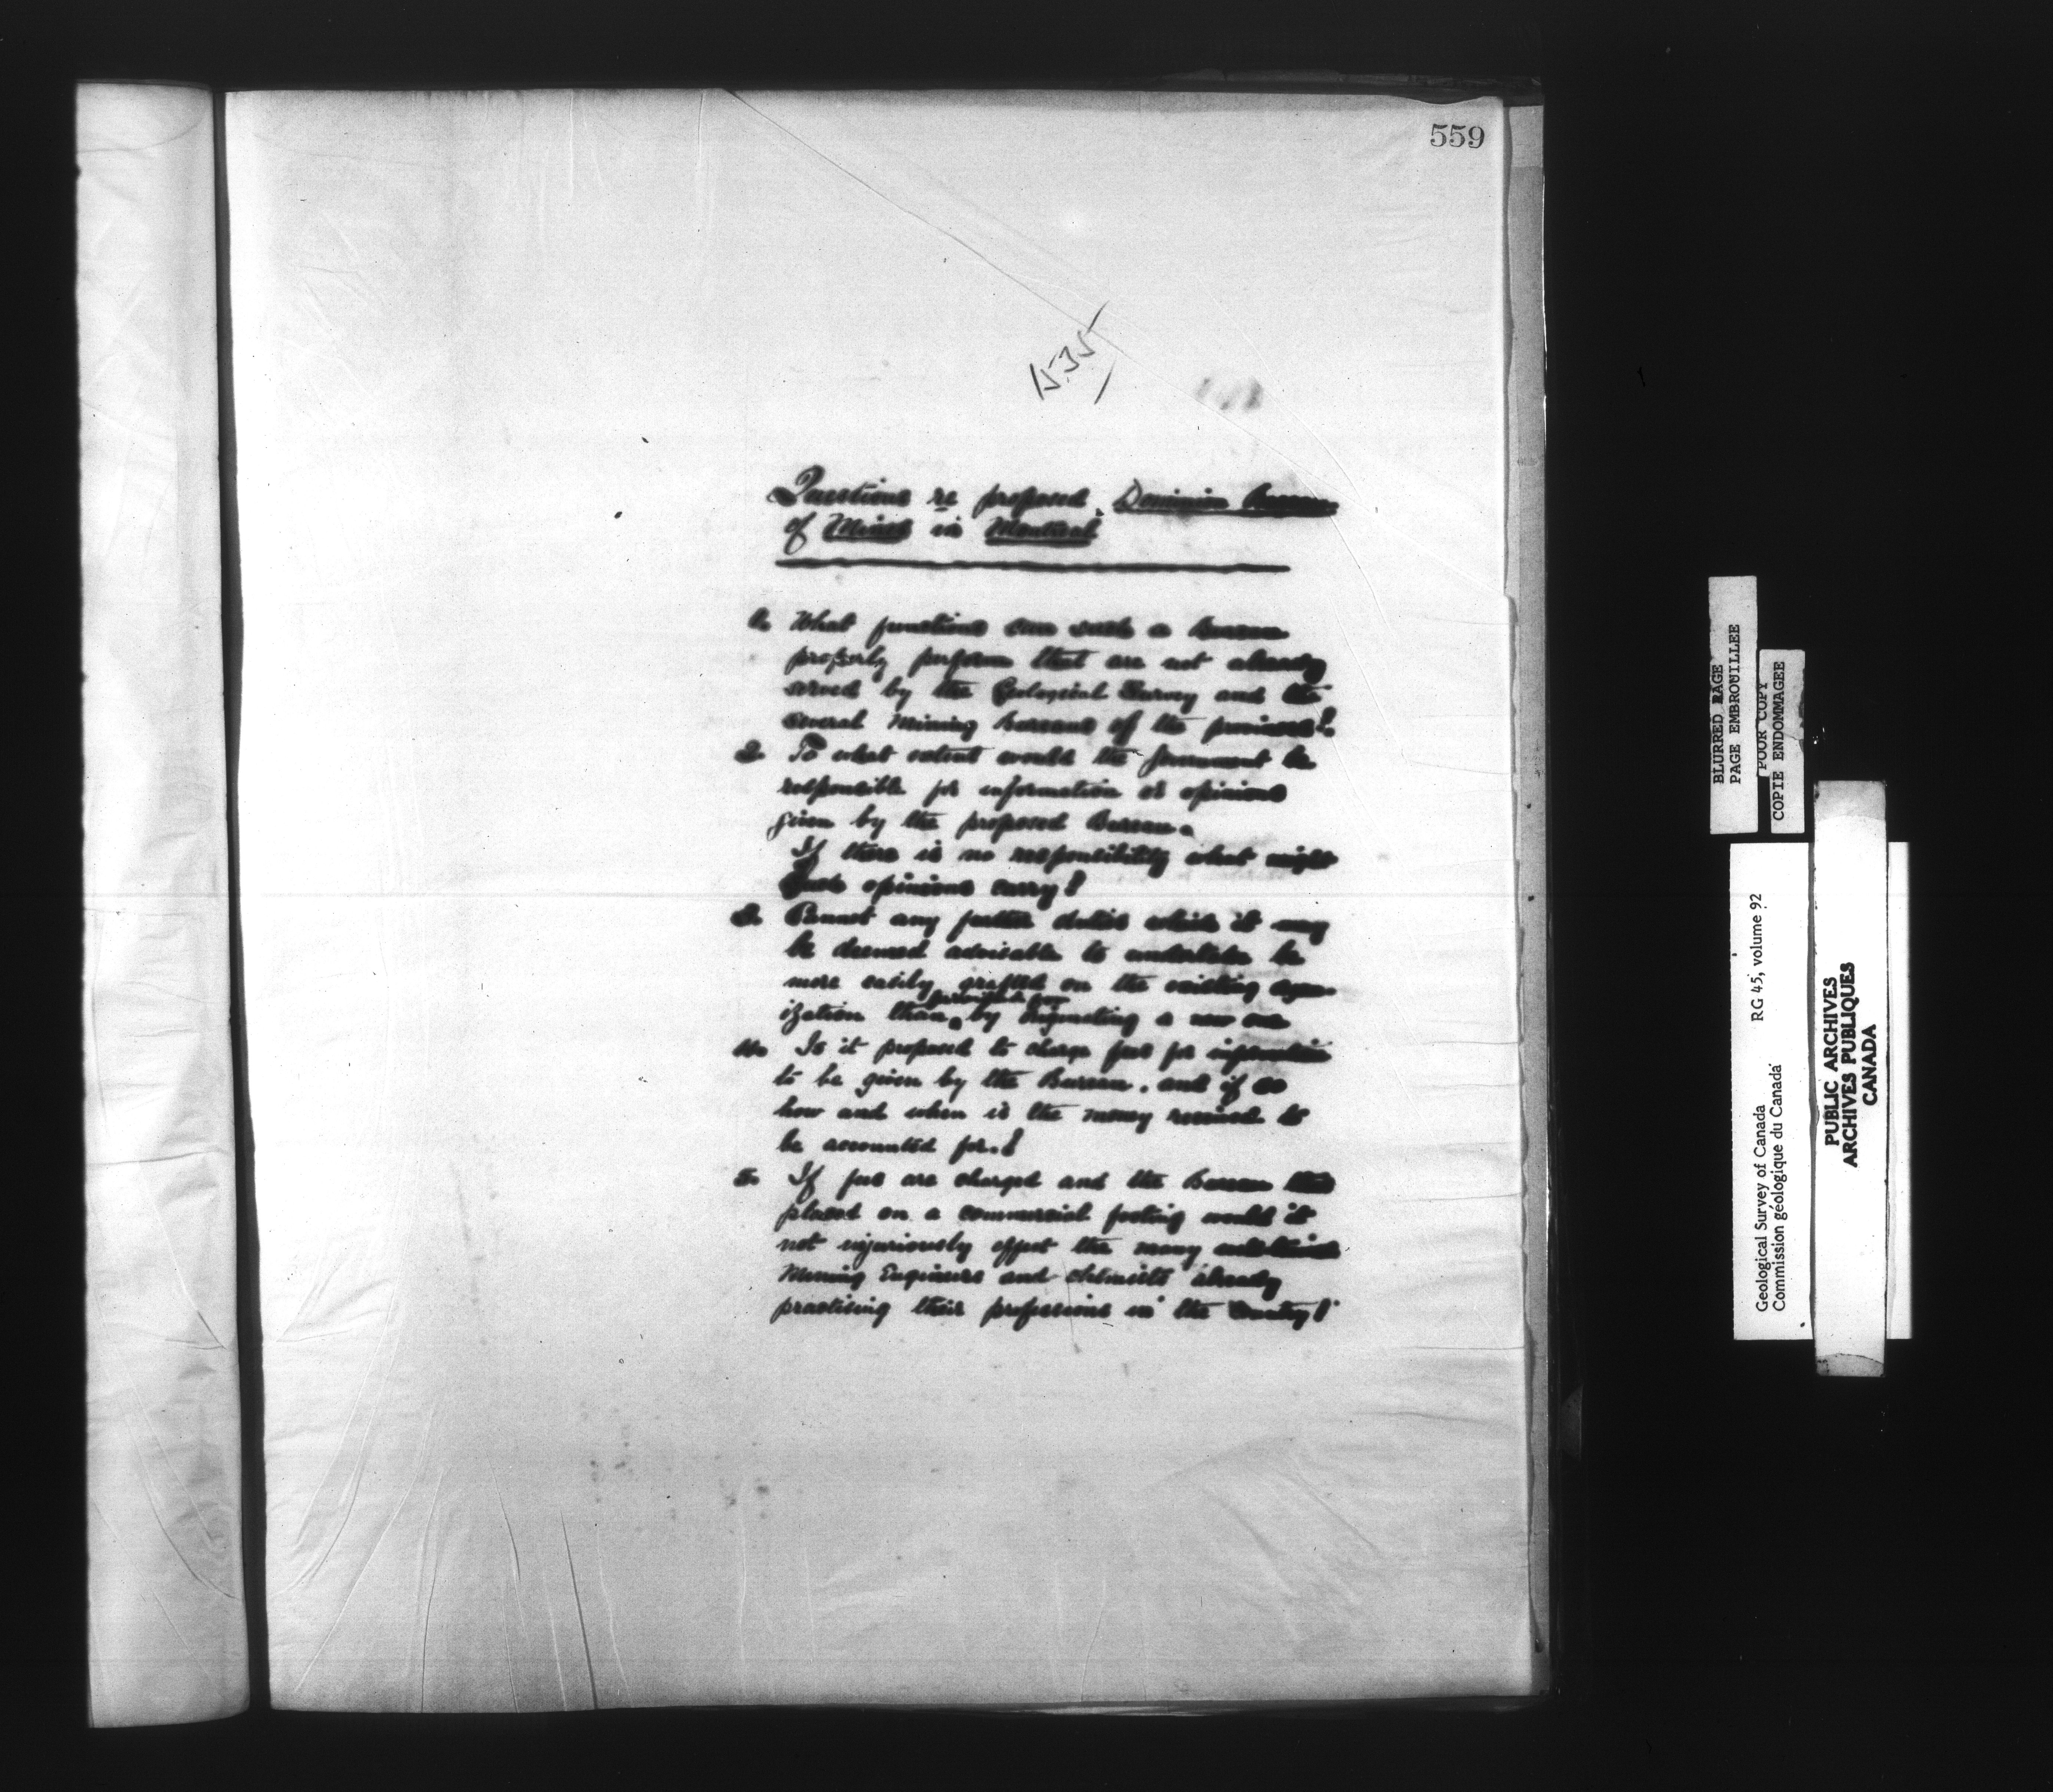 559
(535)
Questions re proposed Dominion Bureau
of Mines in Montreal
1. What functions can such a Bureau
properly perform that are not already
served by the Geological Survey and the
several Mining Bureaus of the provinces?
2. To what extent would the Government be
responsible for information or opinions
given by the proposed Bureau.
If there is no responsibility what weight
such opinions carry?
3. Cannot any further duties which it may
be deemed advisable to undertake be
more easily grafted on the existing organ
ization than by a new one
4. Is it proposed to charge fees for information
to be given by the Bureau, and if so
how and when is the money received to
be accounted for.?
5. If fees are charged and the Bureau thus
placed on a commercial footing would it
not injuriously affect the many
Mining Engineers and chemists already
practising their professions in the Country?
BLURRED PAGE
PAGE EMBROUILLEE
POOR COPY
COPIE ENDOMMAGEE
Geological Survey of Canada RG 45, volume 92
Commission géologique du Canada
PUBLIC ARCHIVES
ARCHIVES PUBLIQUES
CANADA